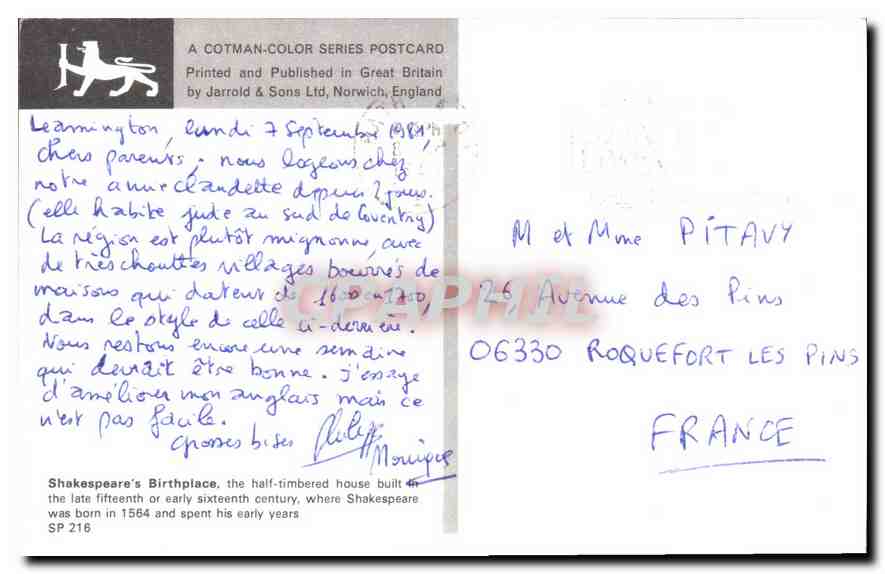 A COTMAN-COLOR SERIES POSTCARD
Printed and Published in Great Britain
by Jarrold & Sons Ltd, Norwich, England
Leamington, lundi 7 Septembre 1981,
chers parents, nous logeons chez
notre amie Claudette depuis 2 jours.
(elle habite juste au sud de Coventry)
La région est plutôt mignonne, avec
de très chouettes villages bourrés de
maisons qui datent de 1600 ou 1700,
dans le style de celle ci-derrière.
Nous restons encore une semaine
qui devrait être bonne. J'essaye
d'améliorer mon anglais mais ce
n'est pas facile.
grosses bises Philippe
Monique
Shakespeare's Birthplace, the half-timbered house built in
the late fifteenth or early sixteenth century, where Shakespeare
was born in 1564 and spent his early years
SP 216
M et Mme PITAVY
26, Avenue des Pins
06330 ROQUEFORT LES PINS
FRANCE
CPAPHIL